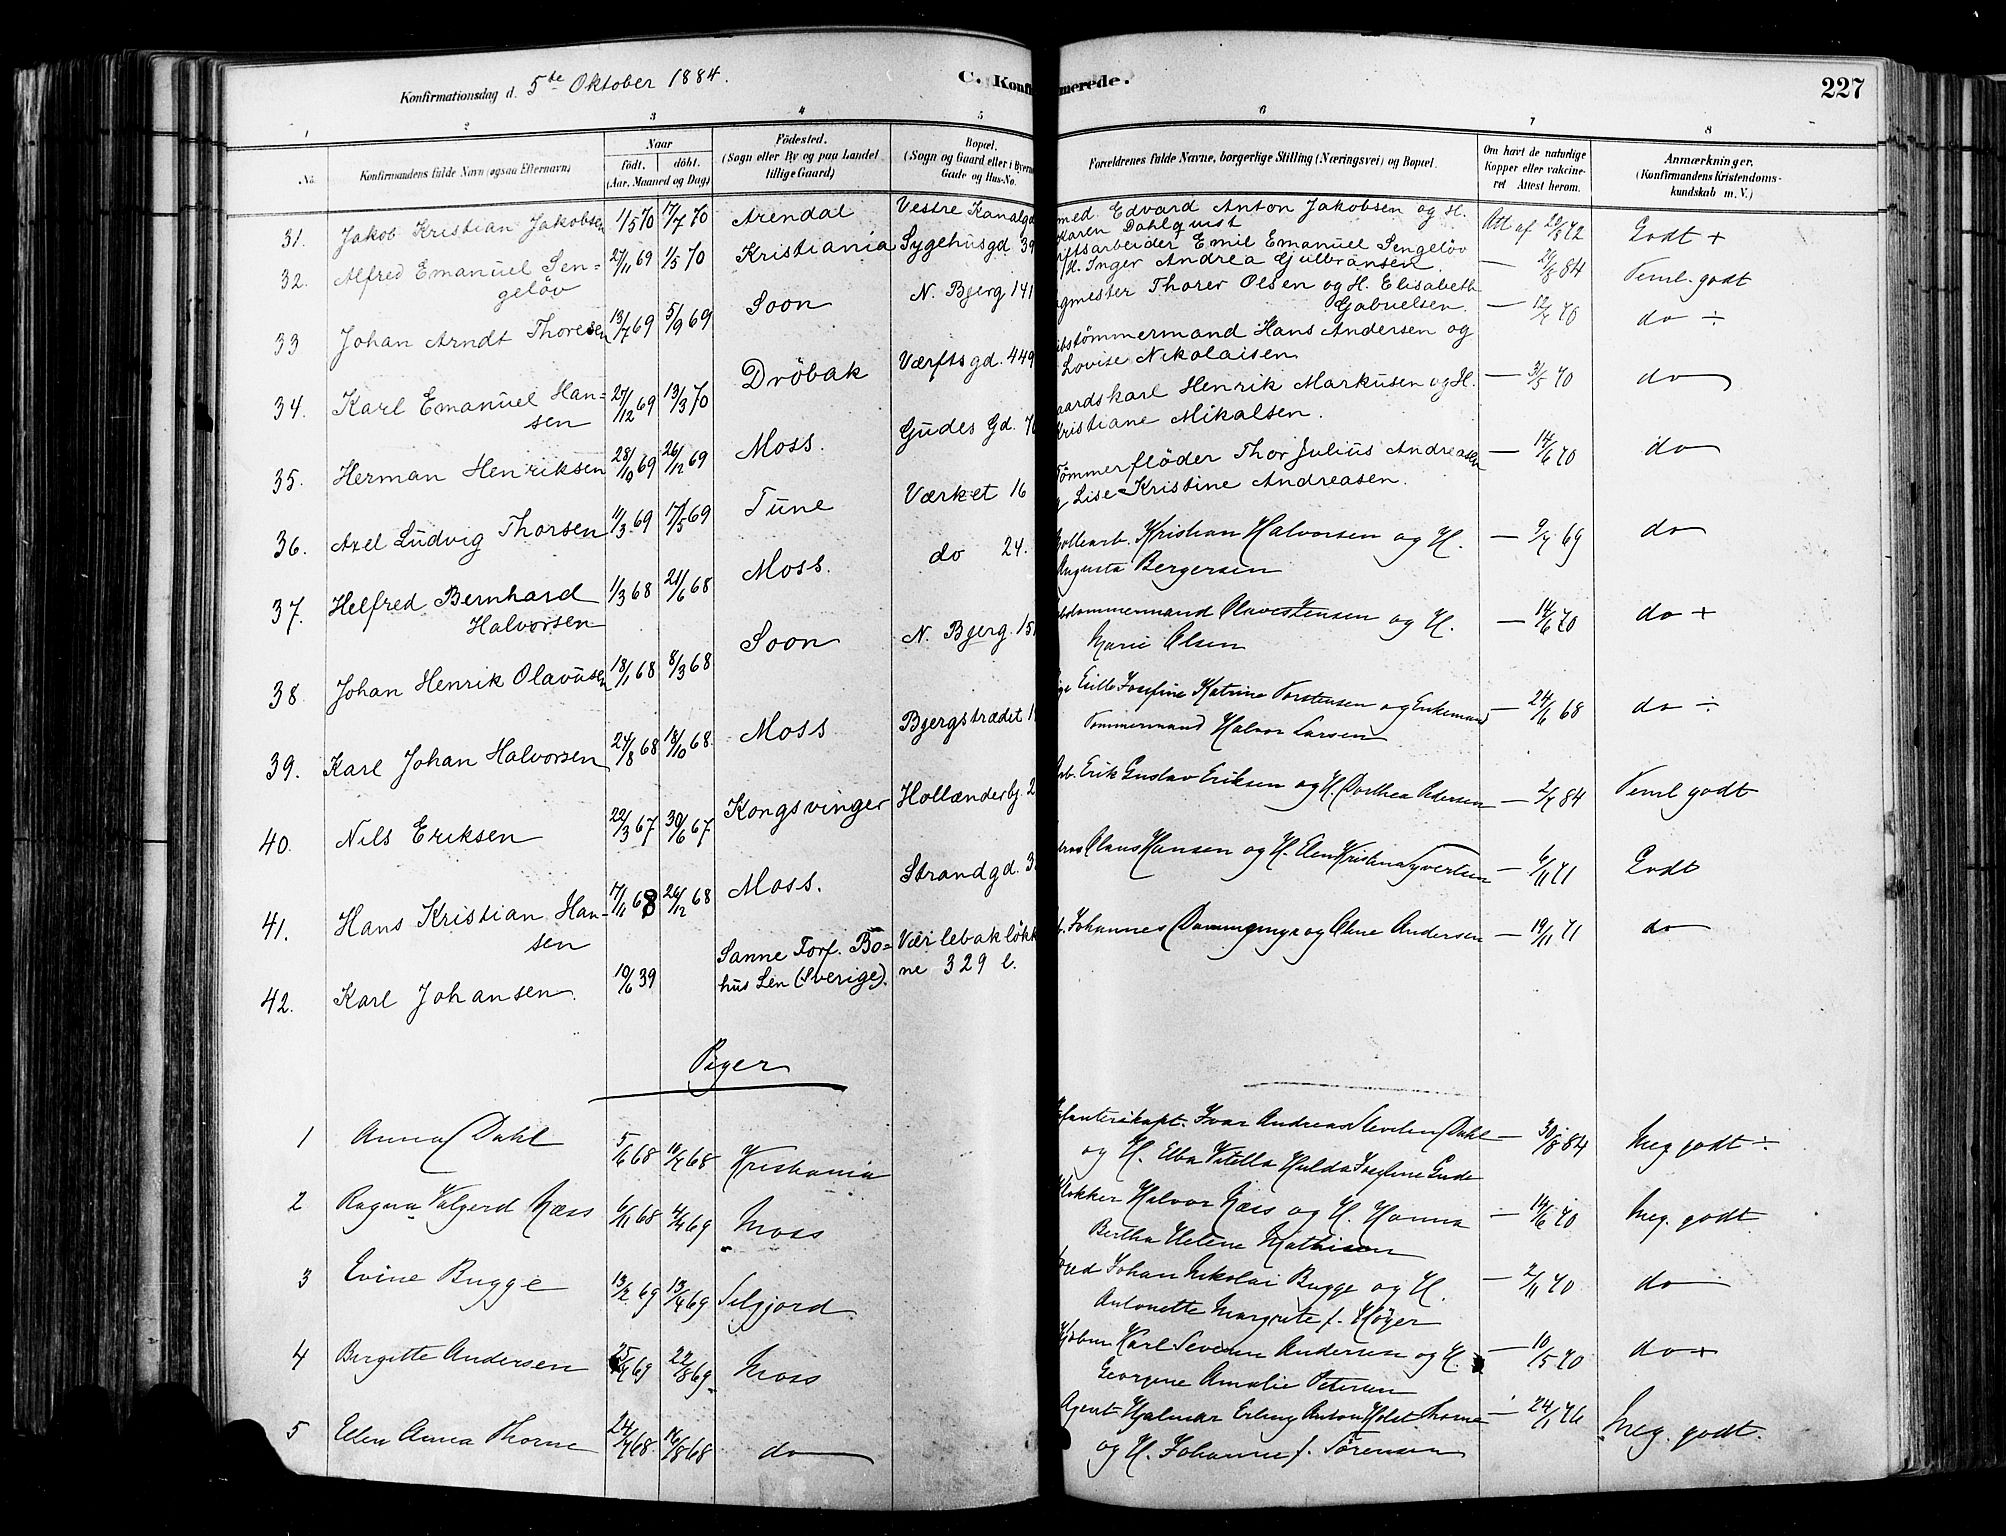 Konfirmationsdag d. 5te Oktober 1884.
C. Konfirmerede.
227
1 2 3 4 5 6 7 8
No.
Konfirmandens fulde Navn (ogsaa Efternavn)
Naar
født. døbt.
(Aar, Maaned og Dag)
Fødested.
(Sogn eller By og paa Landet
tillige Gaard)
Bopæl.
(Sogn og Gaard eller i Byerne
Gade og Hus-No.
Forældrenes fulde Navne, borgerlige Stilling (Næringsvei) og Bopæl.
Om havt de naturlige
Kopper eller vakcine-
ret Attest herom.
Anmærkninger.
(Konfirmandens Kristendoms-
kundskab m. V.)
31. Jakob Kristian Jakobsen 1/5 70 17/7 70 Arendal Vestre Kanalgd
med Edvard Anton Jakobsen og H.
Karen Dahlquist
Att af 20/8 72 Godt +
32. Alfred Emanuel Sen-
geløv
27/11 69 1/5 70 Kristiania Sygehusgd 39
ftsarbeider Emil Emanuel Sengeløv
H. Inger Andrea Gulbransen.
— 29/8 84 Teml. godt
33 Johan Arndt Thoresen 13/7 69 5/9 69 Soon N. Bjerg 141
gmester Thorer Olsen og H. Elisabeth
Gabrielsen.
— 12/7 70 do ÷
34. Karl Emanuel Han-
sen
27/12 69 13/3 70 Drøbak Værftsgd. 449
bstømmermand Hans Andersen og
Lovise Nikolaisen
— 31/5 70 do
35. Herman Henriksen 28/10 69 26/12 69 Moss. Gudes Gd. 7
aardskarl Henrik Markusen og H.
Kristiane Mikalsen.
— 14/6 70 do
36. Axel Ludvig Thorsen 11/3 69 17/5 69 Tune Værket 16
Tømmerfløder Thor Julius Andreasen
og Lise Kristine Andreasen.
— 9/7 69 do
37. Helfred Bernhard
Halvorsen
1/3 68 21/6 68 Moss. do 24.
Kristian Halvorsen og H.
Augusta Bergersen
— 14/6 70 do +
38 Johan Henrik Olavusen 18/1 68 8/3 68 Soon N. Bjerg. 15
Olaves Jensen og H.
Marie Olsen
— 24/6 68 do ÷
39. Karl Johan Halvorsen 24/8 68 18/10 68. Moss Bjergstrædet 1
Josefine Katrine Torstensen og Enkemand
Tømmermand Halvor Larsen
40. Nils Eriksen 22/3 67 30/6 67 Kongsvinger Hollænderbj. 2
Arb. Erik Gustav Eriksen og H. Dorthea Pedersen — 2/7 84 Teml godt
41. Hans Kristian Han-
sen
17/11 68 26/12 68 Moss. Strandgd. 3
Claus Hansen og H. Elen Kristina Syvertsen — 6/11 71 Godt
42. Karl Johansen. 10/6 39 Sanne Forf. Bo-
hus Len (Sverige). Værlebakløkk
ne 329 l.
Johannes og Oline Andersen — 19/11 71 do
Piger
1 Anna Dahl 5/6 68 10/7 68 Kristiania
Infanterikapt. Ivar Andreas Dahl
og H. Elba Vitella Hulda Gude
— 30/8 84 Meg godt ÷
2 Ragna Valgerd Næss 6/11 68 4/4 69 Moss
Klokker Halvor Næss og H. Hanna
Bertha Helene Mathisen
— 14/6 70 Meg. godt
3 Evine Bugge 13/2 69 13/4 69 Seljord
Johan Nikolai Bugge og H.
Antonette Margrete f. Høyer
— 2/11 70 do
4 Birgitte Andersen 25/4 69 22/8 69 Moss
Kjøbm Karl Severin Andersen og H.
Georgine Amalie Petersen
— 10/5 70 do +
5 Elen Anna Thorne 24/4 68 16/8 68 do
Agent Hjalmar Erling Anton Holst Thorne
og H. Johanne f. Sørensen
— 24/1 76 Meg. godt.